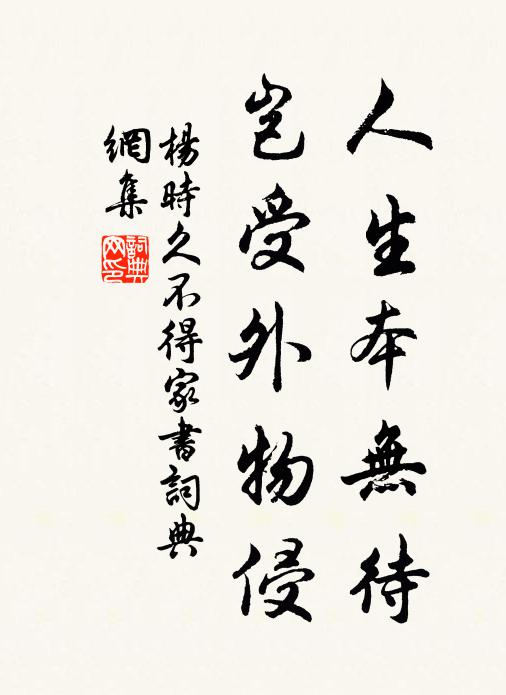 人生本無待
豈受外物侵
楊時久不得家書詞典
網集
詞典網印